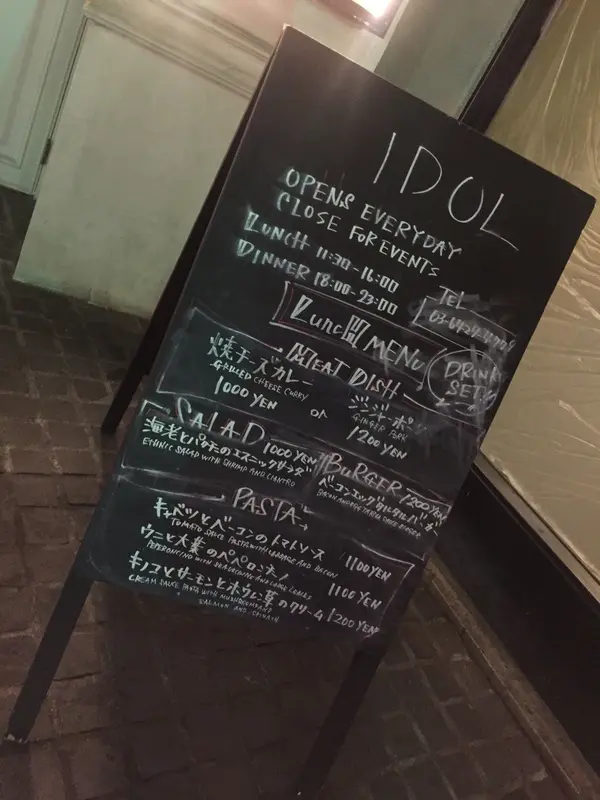 IDOL
OPENS EVERYDAY
CLOSE FOR EVENTS
LUNCH 11:30-16:00
DINNER 18:00-23:00
TEL
LUNCH MENU
DRINK
SET
MEAT DISH
焼チーズカレー
GRILLED CHEESE CURRY
1000 YEN
OR
ジンジャーポーク
GINGER PORK
1200 YEN
SALAD
1000 YEN
海老とパクチーのエスニックサラダ
ETHNIC SALAD WITH SHRIMP AND CILANTRO
BURGER 1200 YEN
ベーコンエッグタルタルバーガー
PASTA
キャベツとベーコンのトマトソース 1100 YEN
TOMATO SAUCE PASTA WITH CABBAGE AND BACON
ウニと大葉のペペロンチーノ 1100 YEN
PEPERONCINO WITH
キノコとサーモンとホウレン草のクリーム 1200 YEN
CREAM SAUCE PASTA WITH MUSHROOM AND
SALMON AND SPINACH